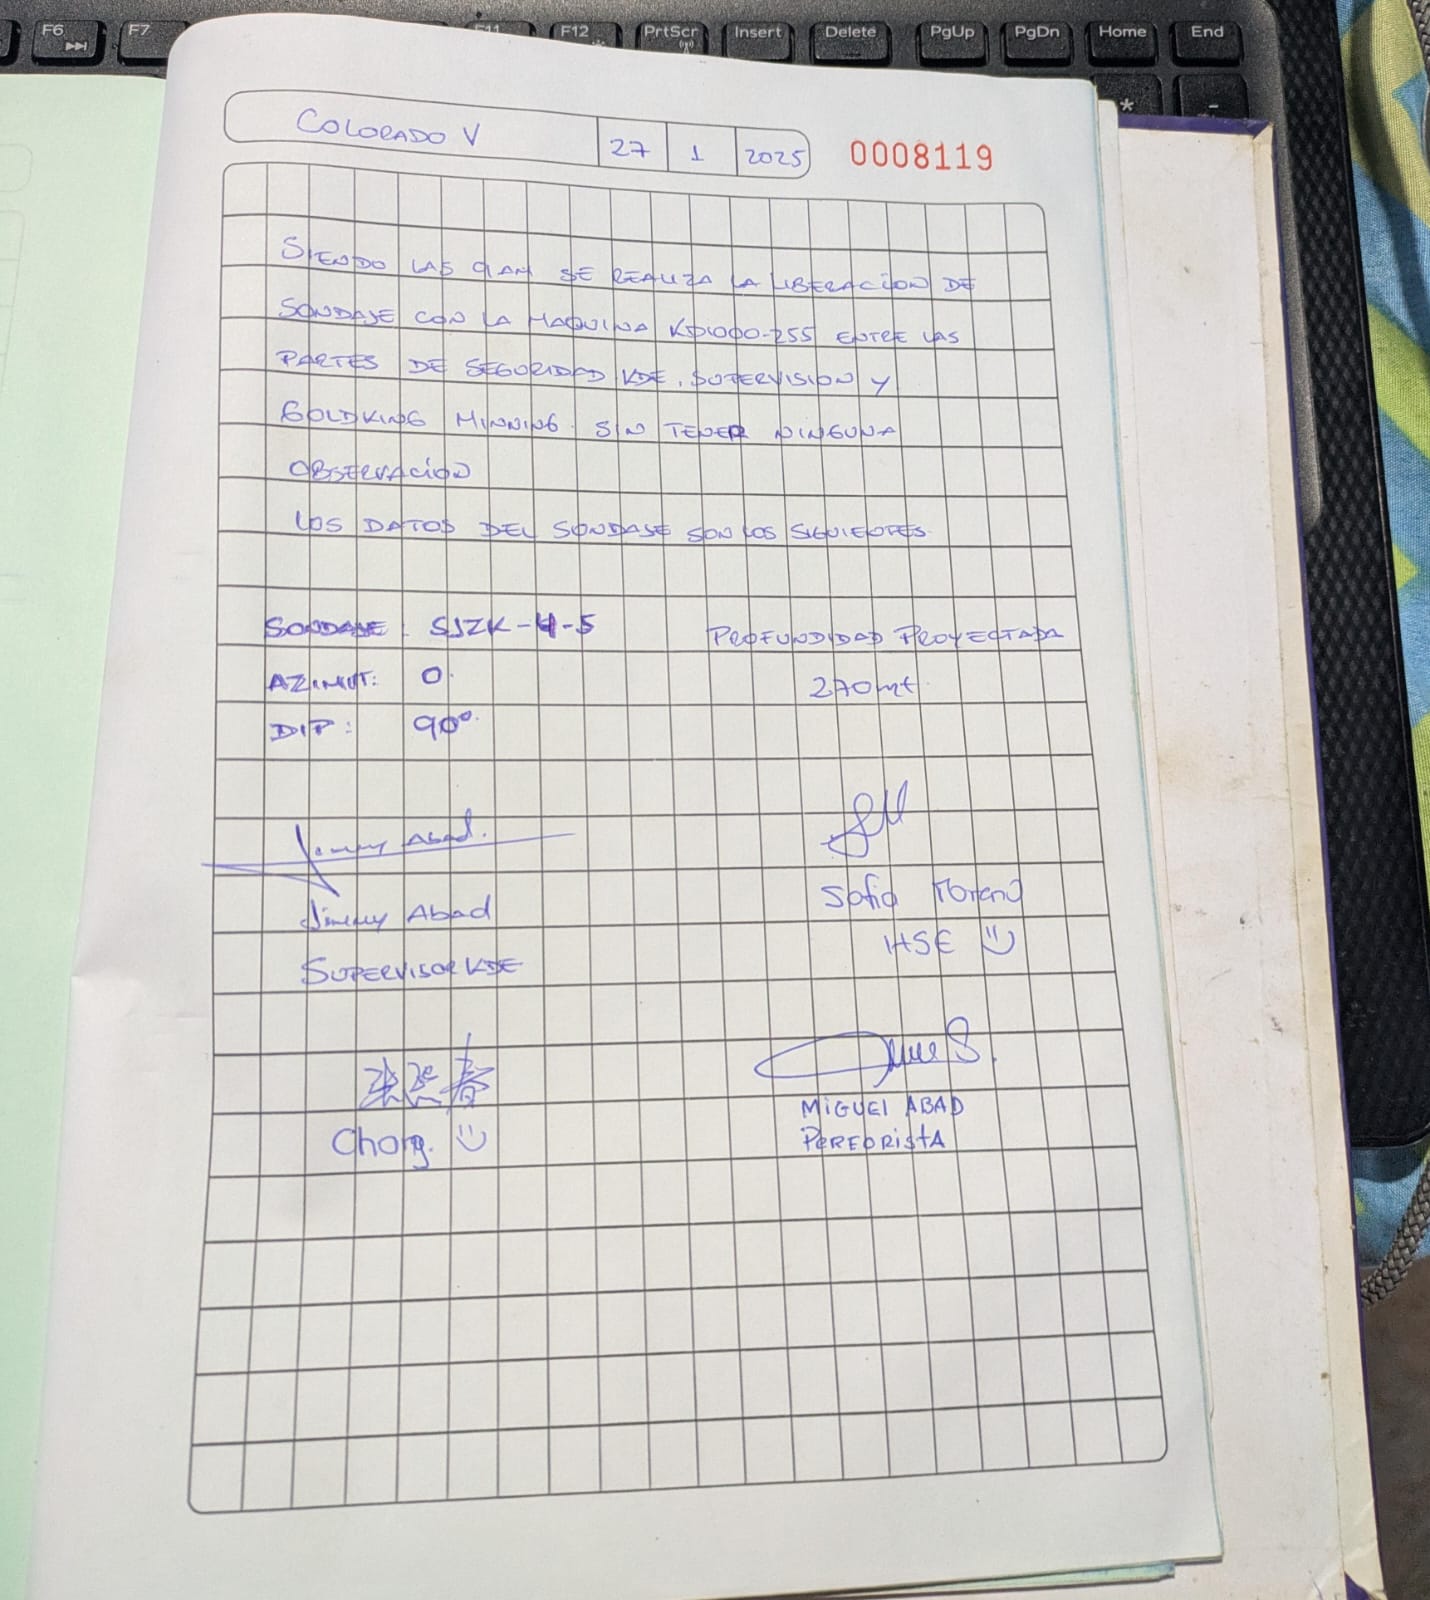 F6
F7
F11
F12
PrtScr
Insert
Delete
PgUp
PgDn
Home
End
*
-
COLORADO V 27 1 2025 0008119
SIENDO LAS 9AM SE REALIZA LA LIBERACION DE
SONDAJE CON LA MAQUINA KD1000-255 ENTRE LAS
PARTES DE SEGURIDAD KDE, SUPERVISION Y
GOLDKING MINNING. SIN TENER NINGUNA
OBSERVACION
LOS DATOS DEL SONDAJE SON LOS SIGUIENTES.
SONDAJE: SJZK-4-5 PROFUNDIDAD PROYECTADA
AZIMUT: 0. 270mt.
DIP: 90°.
Jimmy Abad.
Jimmy Abad Sofia Moreno
HSE
SUPERVISOR KDE
MIGUEL ABAD
Chong. PERFORISTA